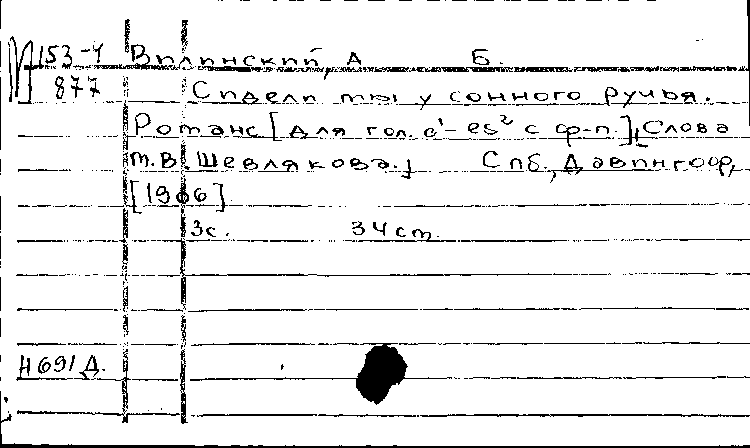 М153-4 Вилинский, А Б.
877 Сидели мы у сонного ручья.
Романс [для гол. c¹-es² с ф-п.], [Слова
М.В. Шевлякова.] Спб., Давингоф,
[1906]
3с. 34см.
Н691Д.